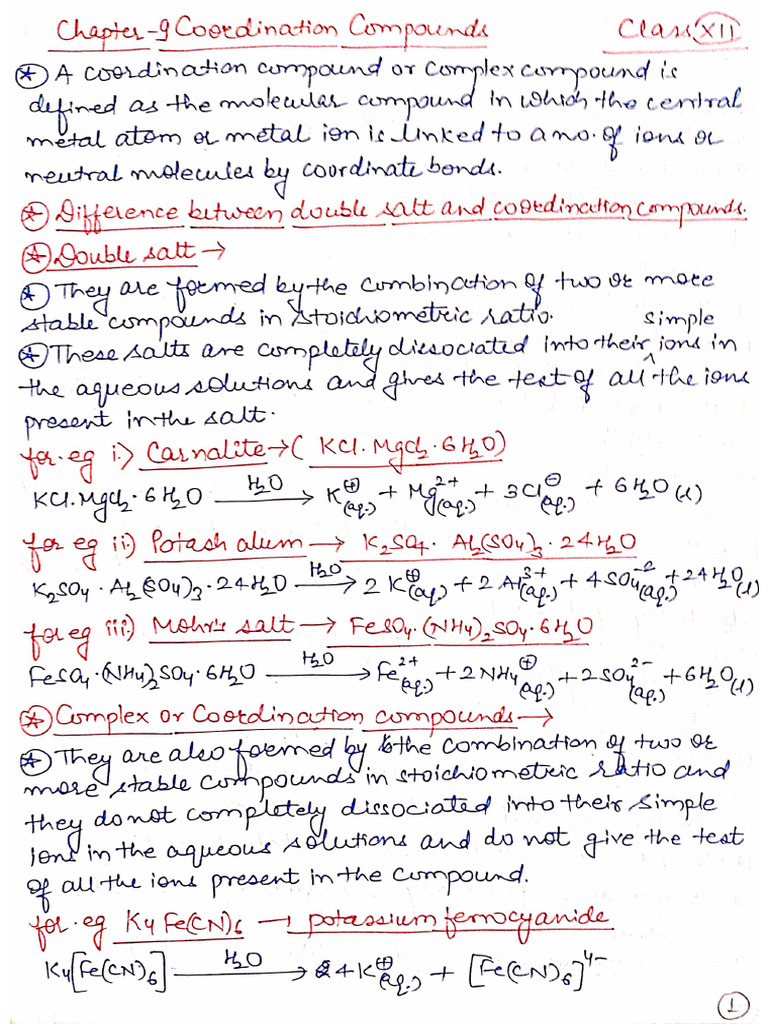 Chapter-9 Coordination Compounds Class XII
A coordination compound or complex compound is
defined as the molecular compound in which the central
metal atom or metal ion is linked to a no. of ions or
neutral molecules by coordinate bonds.
Difference between double salt and coordination compounds.
Double salt →
They are formed by the combination of two or more
stable compounds in stoichiometric ratio.
These salts are completely dissociated into their simple ions in
the aqueous solutions and gives the test of all the ions
present in the salt.
for eg i.) Carnalite → ( KCl. MgCl₂ · 6H₂O)
KCl. MgCl₂ · 6H₂O —H₂O→ K⊕(aq.) + Mg²⁺(aq.) + 3Cl⊖(aq.) + 6H₂O(l)
for eg ii) Potash alum → K₂SO₄ · Al₂(SO₄)₃ · 24H₂O
K₂SO₄ · Al₂(SO₄)₃ · 24H₂O —H₂O→ 2K⊕(aq.) + 2Al³⁺(aq.) + 4SO₄⁻²(aq.) + 24H₂O(l)
for eg iii) Mohr's salt → FeSO₄ · (NH₄)₂SO₄ · 6H₂O
FeSO₄ · (NH₄)₂SO₄ · 6H₂O —H₂O→ Fe²⁺(aq.) + 2NH₄⊕(aq.) + 2SO₄²⁻(aq.) + 6H₂O(l)
Complex or Coordination compounds →
They are also formed by the combination of two or
more stable compounds in stoichiometric ratio and
they do not completely dissociated into their simple
ions in the aqueous solutions and do not give the test
of all the ions present in the compound.
for eg K₄Fe(CN)₆ → potassium ferrocyanide
K₄[Fe(CN)₆] —H₂O→ 4K⊕(aq.) + [Fe(CN)₆]⁴⁻
1